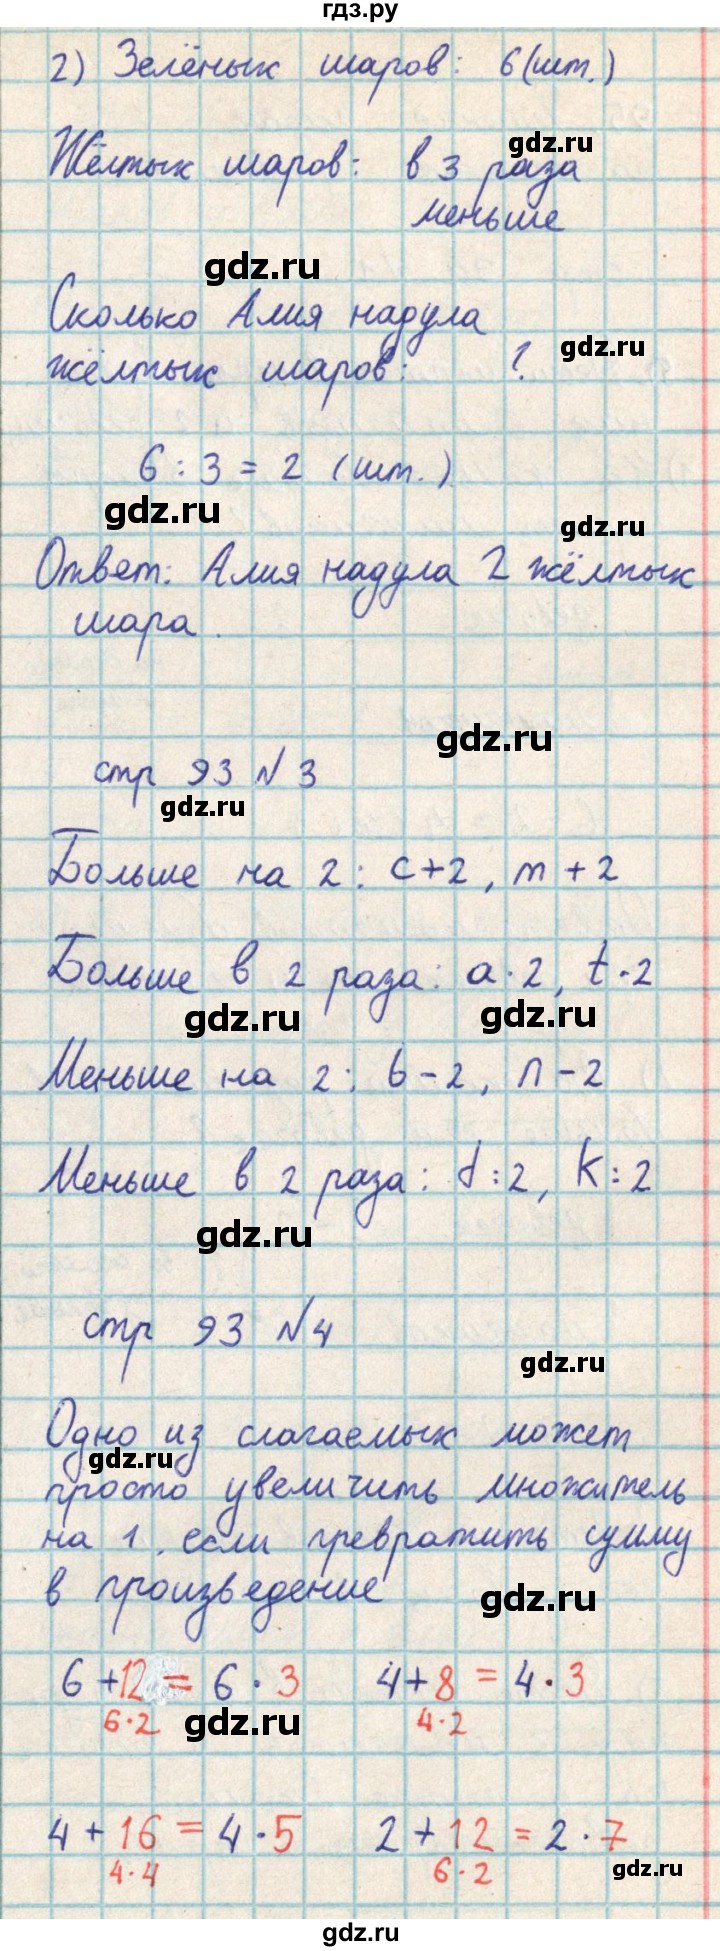 гдз.ру
2) Зелёных шаров: 6 (шт.)
gdz.ru
Жёлтых шаров: в 3 раза
меньше
gdz.ru
Сколько Алия надула
gdz.ru
жёлтых шаров: ?
6 : 3 = 2 (шт.)
gdz.ru
gdz.ru
Ответ: Алия надула 2 жёлтых
шара.
gdz.ru
стр 93 N 3
gdz.ru
Больше на 2: c+2, m+2
Больше в 2 раза: a·2, t·2
gdz.ru
gdz.ru
Меньше на 2: b-2, n-2
Меньше в 2 раза: d:2, k:2
gdz.ru
стр 93 N 4
gdz.ru
Одно из слагаемых может
gdz.ru
просто увеличить множитель
на 1, если превратить сумму
в произведение
gdz.ru
6 + 12 = 6 · 3 4 + 8 = 4 · 3
6·2 4·2
gdz.ru
4 + 16 = 4 · 5 2 + 12 = 2 · 7
4·4 6·2
gdz.ru
gdz.ru